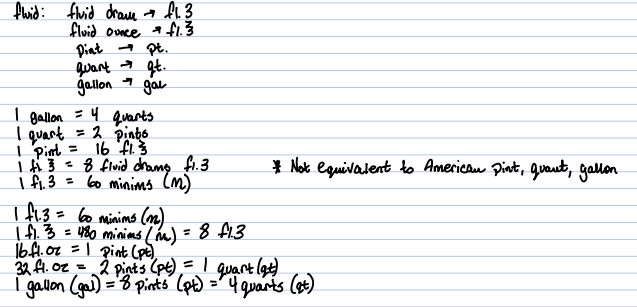 fluid: fluid dram → fl. ʒ
fluid ounce → fl. ℥
pint → pt.
quart → qt.
gallon → gal
1 gallon = 4 quarts
1 quart = 2 pints
1 pint = 16 fl. ℥
1 fl. ℥ = 8 fluid drams fl. ʒ * Not equivalent to American pint, quart, gallon
1 fl. ʒ = 60 minims (m)
1 fl. ʒ = 60 minims (m)
1 fl. ℥ = 480 minims (m) = 8 fl. ʒ
16 fl. oz = 1 pint (pt)
32 fl. oz = 2 pints (pt) = 1 quart (qt)
1 gallon (gal) = 8 pints (pt) = 4 quarts (qt)